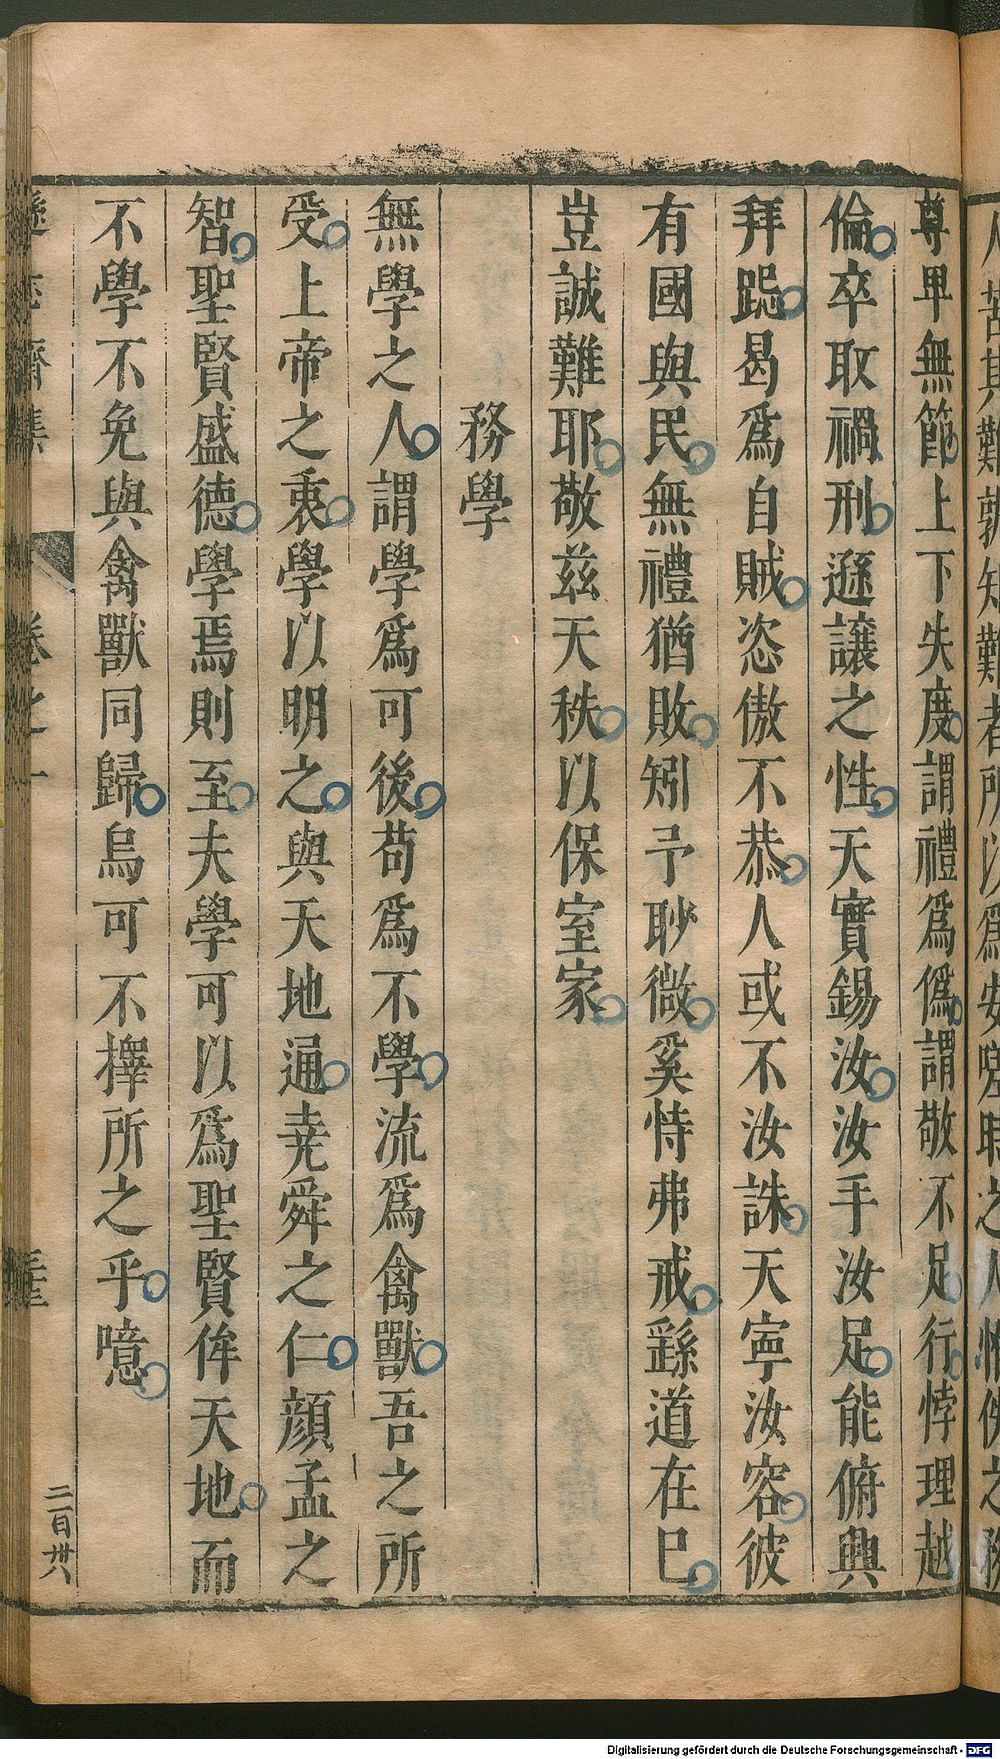 尊卑無節上下失度謂禮爲僞謂敬不足行悖理越
倫卒取禍刑遜讓之性天實錫汝汝手汝足能俯興
拜跽曷爲自賊恣傲不恭人或不汝誅天寧汝容彼
有國與民無禮猶敗矧予眇微奚恃弗戒繇道在已
豈誠難耶敬兹天秩以保室家
務學
無學之人謂學爲可後苟爲不學流爲禽獸吾之所
受上帝之衷學以明之與天地通堯舜之仁顏孟之
智聖賢盛德學焉則至夫學可以爲聖賢侔天地而
不學不免與禽獸同歸烏可不擇所之乎噫
遜志齋集 卷之一
二百卅八
Digitalisierung gefördert durch die Deutsche Forschungsgemeinschaft - DFG